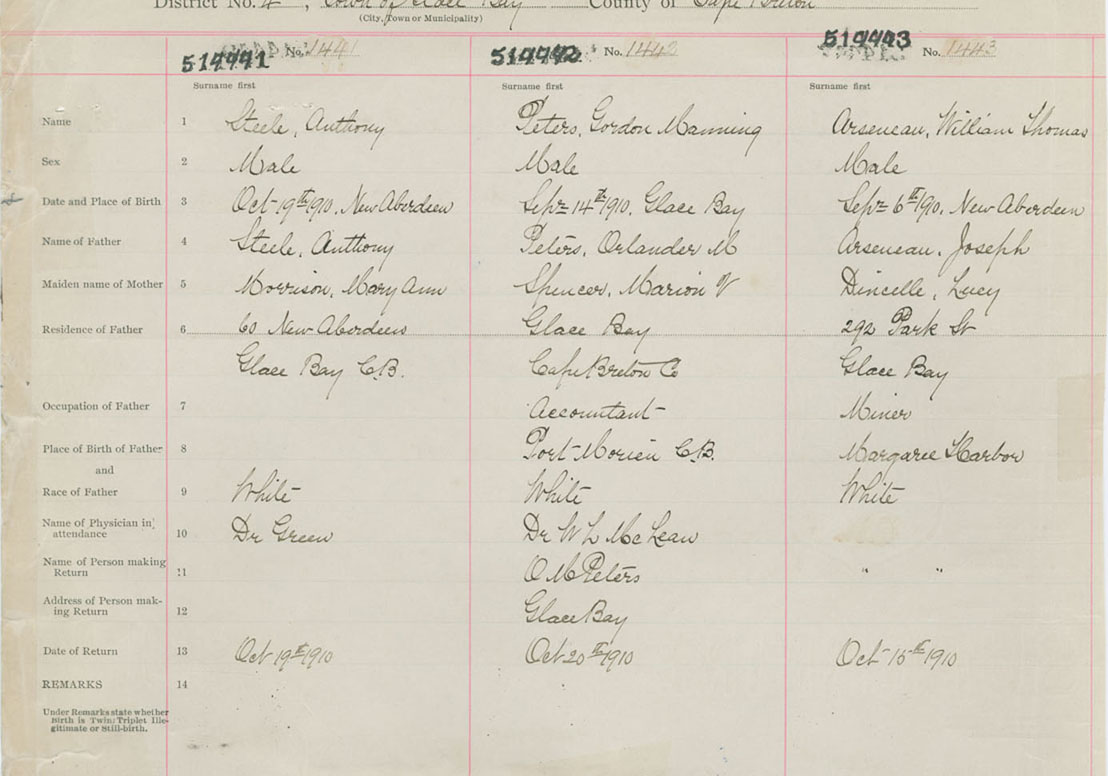 District No. 4, Town of Glace Bay County of Cape Breton
(City, Town or Municipality)
514441 No. 1441 514442 No. 1442 514443 No. 1443
Surname first Surname first Surname first
Name 1 Steele, Anthony Peters, Gordon Manning Arseneau, William Thomas
Sex 2 Male Male Male
Date and Place of Birth 3 Oct 19th 1910, New Aberdeen Sept 14th 1910, Glace Bay Sept 6th 1910, New Aberdeen
Name of Father 4 Steele, Anthony Peters, Orlander M Arseneau, Joseph
Maiden name of Mother 5 Morrison, Mary Ann Spencer, Marion V Dincelle, Lucy
Residence of Father 6 60 New Aberdeen Glace Bay 292 Park St
Glace Bay C.B. Cape Breton Co Glace Bay
Occupation of Father 7 Accountant Miner
Place of Birth of Father 8 Port Morien C.B. Margaree Harbor
and
Race of Father 9 White White White
Name of Physician in attendance 10 Dr Green Dr W L McLean
Name of Person making Return 11 O M Peters " "
Address of Person making Return 12 Glace Bay
Date of Return 13 Oct 19th 1910 Oct 20th 1910 Oct 15th 1910
REMARKS 14
Under Remarks state whether
Birth is Twin: Triplet Ille-
gitimate or Still-birth.